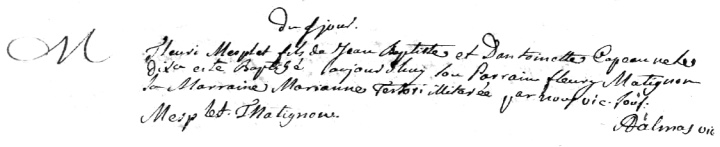 Du d jour.
M
Fleuri Mesplet fils de Jean Baptiste et D'antoinette Capeau né le
dix a esté Baptisé aujourd'huy son Parrain fleury Matignon
la Marraine Marianne illitérée par nous vic. souss.
Mesplet. Matignon. Dalmas vic